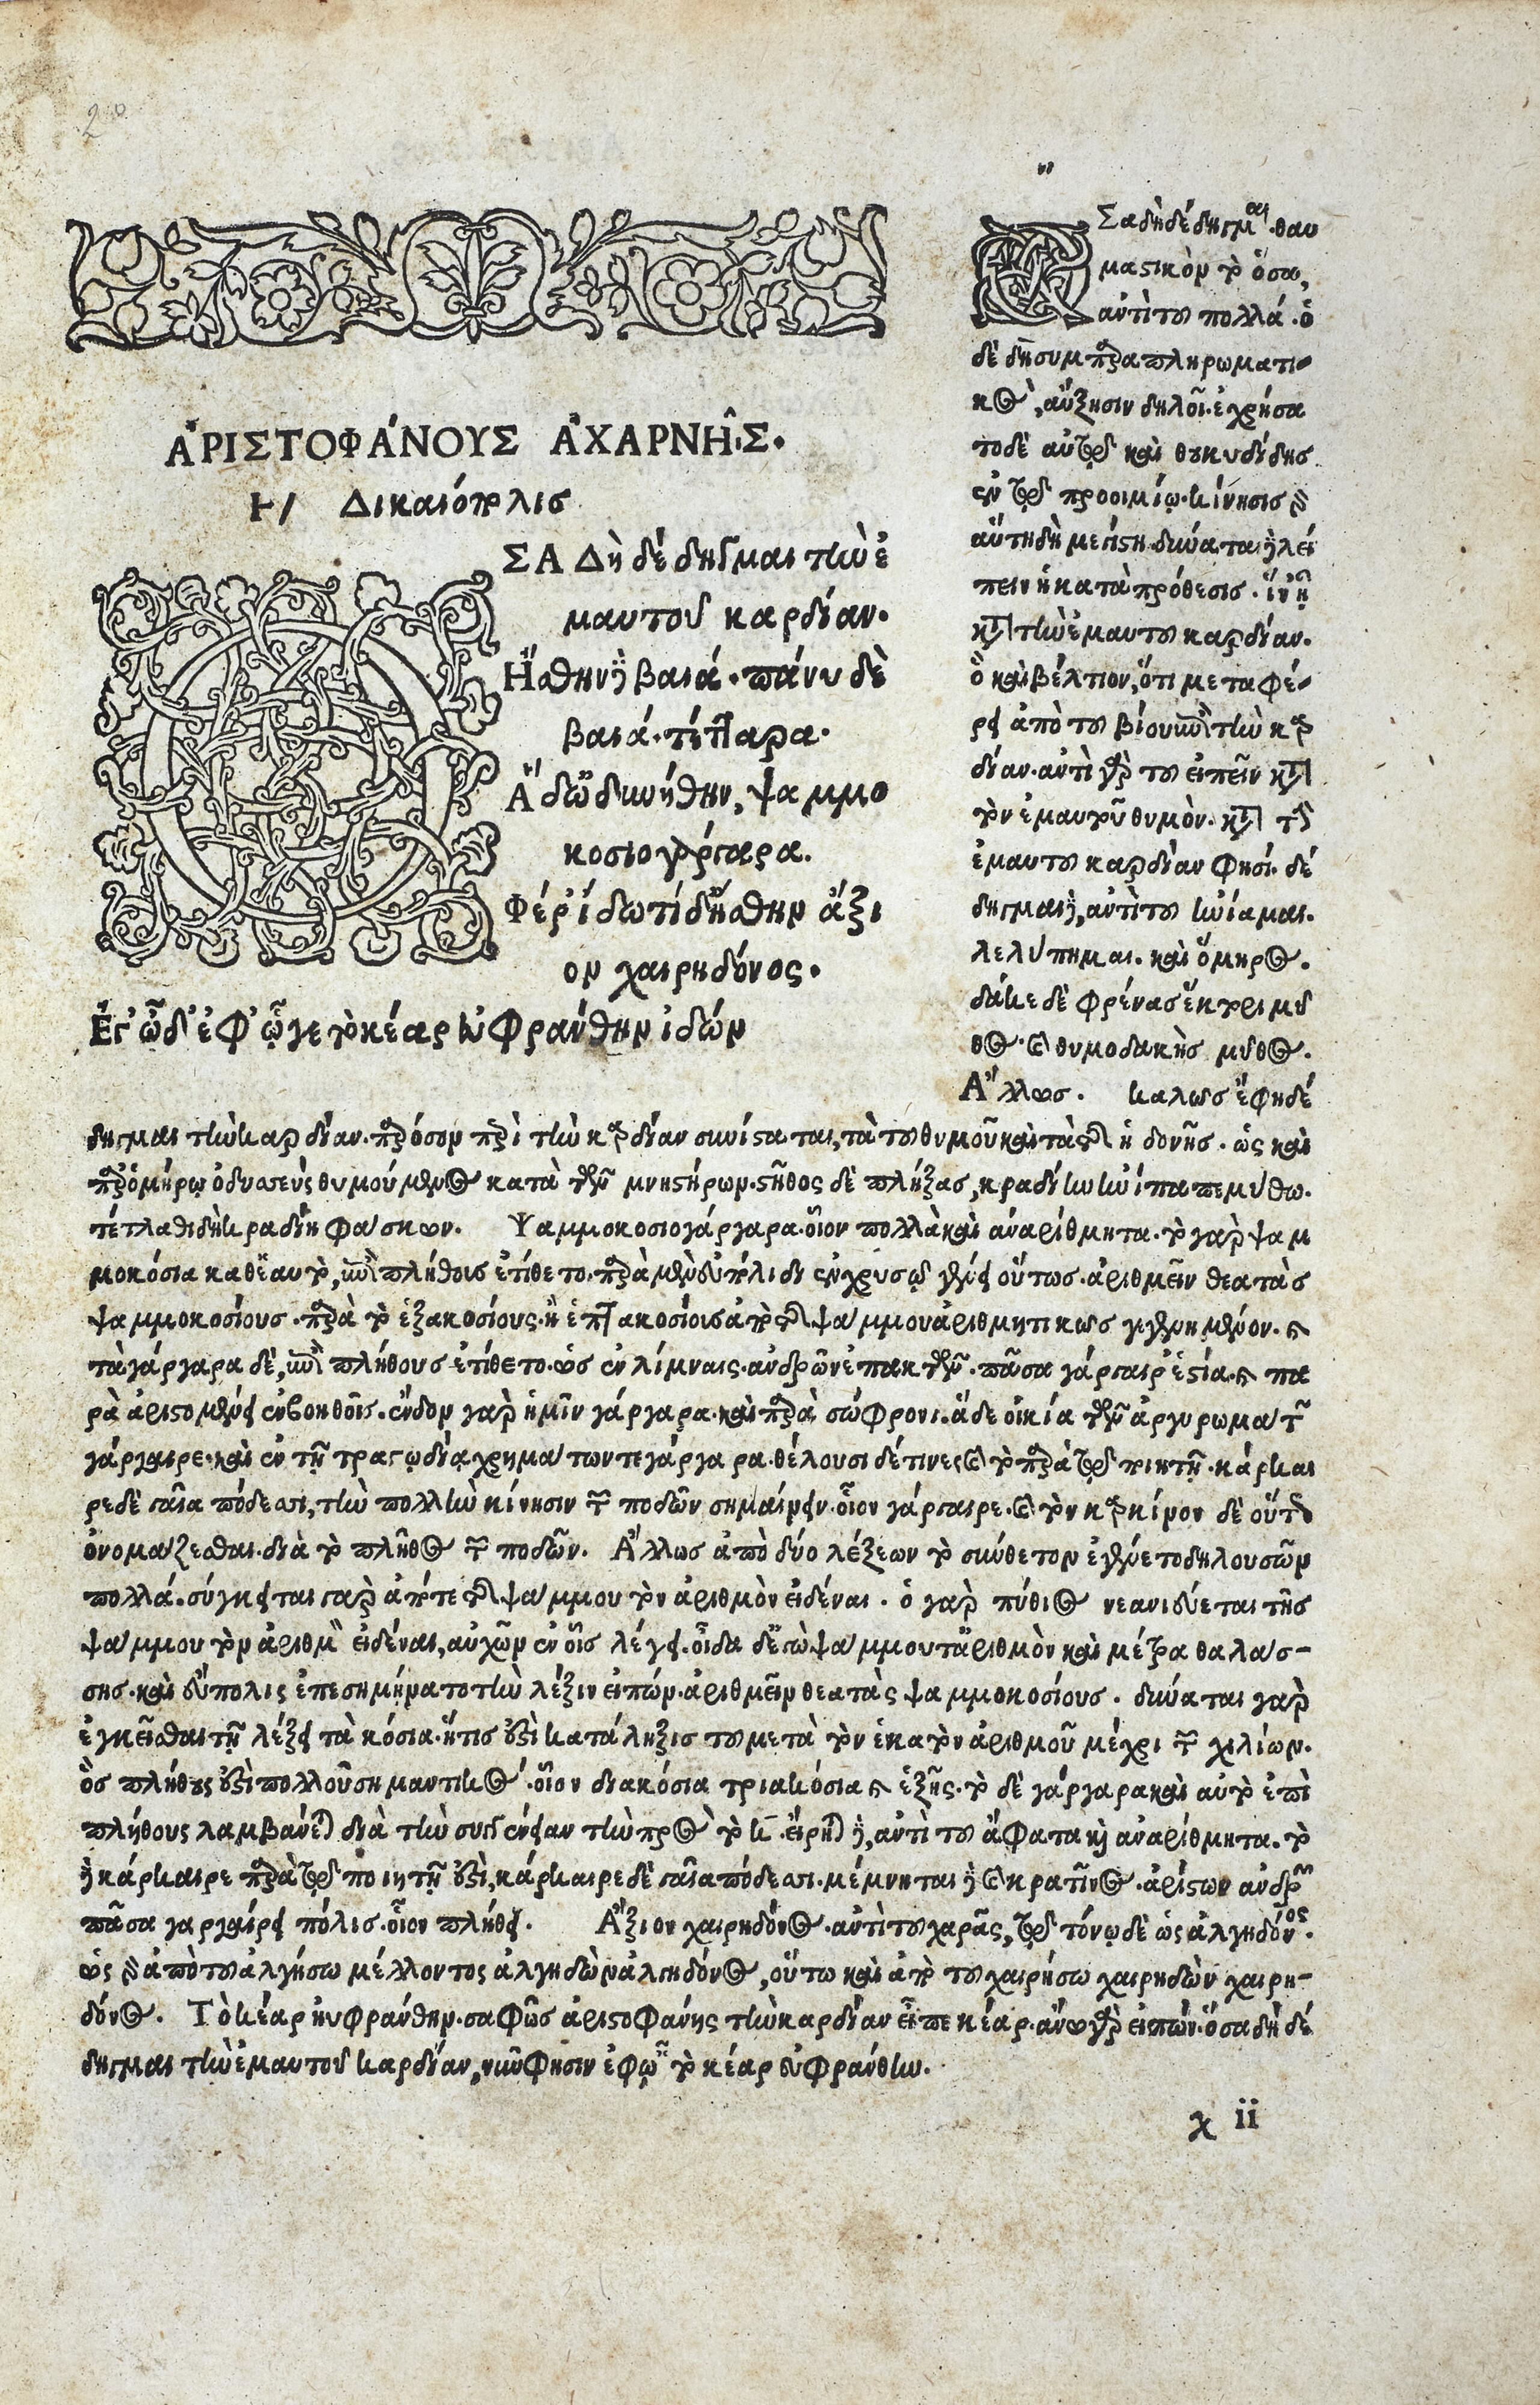 ἈΡΙΣΤΟΦΆΝΟΥΣ ἈΧΑΡΝΗ͂Σ.
Δικαιόπολις
ΣΑ Δὴ δέδηγμαι τὴν ἐ
μαυτοῦ καρδίαν.
Ἥσθην δὲ βαιά. πάνυ δὲ
βαιά. τέτταρα.
Ἃ δ' ὠδυνήθην, ψαμμο
κοσιογάργαρα.
Φέρ' ἴδω τί δ' ἥσθην ἄξι
ον χαιρηδόνος.
Ἐγᾦδ' ἐφ' ᾧ γε τὸ κέαρ εὐφράνθην ἰδών
Ὅσα δὴ δέδηγμαι. θαυ
μαστικὸν τὸ ὅσα,
ἀντὶ τοῦ πολλά. ὁ
δὲ δὴ συμπαραπληρωματι-
κὸς, αὔξησιν δηλοῖ. ἐχρήσα
το δὲ αὐτῷ καὶ θουκυδίδης
ἐν τῷ προοιμίῳ. κίνησις γὰρ
αὕτη δὴ μεγίστη. δύναται δὲ λεί
πειν ἡ κατὰ πρόθεσις. ἵν' ᾖ
κατὰ τὴν ἐμαυτοῦ καρδίαν.
ὃ καὶ βέλτιον, ὅτι μεταφέ-
ρει ἀπὸ τοῦ βίου ἐπὶ τὴν καρ
δίαν. ἀντὶ γὰρ τοῦ εἰπεῖν κατὰ
τὸν ἐμαυτοῦ θυμὸν. κατὰ τὴν
ἐμαυτοῦ καρδίαν φησί. δέ
δηγμαι δὲ, ἀντὶ τοῦ ἠνίαμαι.
λελύπημαι. καὶ ὅμηρος.
δάκε δὲ φρένας ἕκτορι μῦ
θος. καὶ θυμοδακὴς μῦθος.
Ἄλλως. καλῶς ἔφη δέ
δηγμαι τὴν καρδίαν. παρόσον περὶ τὴν καρδίαν συνίσταται, τὰ τοῦ θυμοῦ καὶ τὰ τῆς ἡδονῆς. ὡς καὶ
παρ' ὁμήρῳ ὀδυσσεὺς θυμούμενος κατὰ τῶν μνηστήρων. στῆθος δὲ πλήξας, κραδίην ἠνίπαπε μύθῳ.
τέτλαθι δὴ κραδίη φάσκων. Ψαμμοκοσιογάργαρα. οἷον πολλὰ καὶ ἀναρίθμητα. τὸ γὰρ ψαμ
μοκόσια καθ' ἑαυτὸ, ἐπὶ πλήθους ἐτίθετο. παρὰ μὲν εὐπόλιδι ἐν χρυσῷ γένει οὕτως. ἀριθμεῖν θεατὰς
ψαμμοκοσίους. παρὰ τὸ ἑξακοσίους. ἢ ἑπτακοσίους ἀπὸ τῆς ψάμμου ἀριθμητικῶς γεγενημένον. καὶ
τὰ γάργαρα δὲ, ἐπὶ πλήθους ἐτίθετο. ὡς ἐν λίμναις. ἀνδρῶν ἐπακτῶν. πᾶσα γάργαιρ' ἑστία. καὶ πα
ρὰ ἀριστομένει ἐν βοηθοῖς. ἔνδον γὰρ ἡμῖν γάργαρα. καὶ παρὰ σώφρονι. ἅ δε οἰκία τῶν ἀργυρωμάτων
γάργαιρε. καὶ ἐν τῇ τραγῳδίᾳ χρημάτων τε γάργαρα. θέλουσι δέ τινες καὶ τὸ παρὰ τῷ ποιητῇ. κάρκαι
ρε δὲ γαῖα πόδεσσι, τὴν πολλὴν κίνησιν τῶν ποδῶν σημαίνειν. οἷον γάργαιρε. καὶ τὸν καρκίνον δὲ οὕτως
ὀνομάζεσθαι. διὰ τὸ πλῆθος τῶν ποδῶν. Ἄλλως ἀπὸ δύο λέξεων τὸ σύνθετον ἐγένετο δηλουσῶν
πολλά. σύγκειται γὰρ ἀπό τε τῆς ψάμμου τὸν ἀριθμὸν εἰδέναι. ὁ γὰρ πύθιος νεανιεύεται τῆς
ψάμμου τὸν ἀριθμὸν εἰδέναι, αὐχῶν ἐν οἷς λέγει. οἶδα δ' ἐγὼ ψάμμου τ' ἀριθμὸν καὶ μέτρα θαλάσ-
σης. καὶ εὔπολις ἐπεσημήνατο τὴν λέξιν εἰπών. ἀριθμεῖν θεατὰς ψαμμοκοσίους. δύναται γὰρ
ἐγκεῖσθαι τῇ λέξει τὰ κόσια. ἥτις ἐστὶ κατάληξις τοῦ μετὰ τὸν ἑκατὸν ἀριθμοῦ μέχρι τῶν χιλίων.
ὃς πλήθους ἐστὶ πολλοῦ σημαντικός. οἷον διακόσια τριακόσια καὶ ἑξῆς. τὸ δὲ γάργαρα καὶ αὐτὸ ἐπὶ
πλήθους λαμβάνεται διὰ τὴν συγγένειαν τὴν πρὸς τὸ κ. εἴρηται δὲ, ἀντὶ τοῦ ἄφατα καὶ ἀναρίθμητα. τὸ
δὲ κάρκαιρε παρὰ τῷ ποιητῇ ἐστὶ, κάρκαιρε δὲ γαῖα πόδεσσι. μέμνηται δὲ καὶ κρατῖνος. ἀρίστων ἀνδρῶν
πᾶσα γαργαίρει πόλις. οἷον πλήθει. Ἄξιον χαιρηδόνος. ἀντὶ τοῦ χαρᾶς, τῷ τόνῳ δὲ ὡς ἀλγηδόνος.
ὡς γὰρ ἀπὸ τοῦ ἀλγήσω μέλλοντος ἀλγηδὼν ἀλγηδόνος, οὕτω καὶ ἀπὸ τοῦ χαιρήσω χαιρηδὼν χαιρη-
δόνος. Τὸ κέαρ ηυφράνθην. σαφῶς ἀριστοφάνης τὴν καρδίαν εἶπε κέαρ. ἄνω γὰρ εἰπών. ὅσα δὴ δέ
δηγμαι τὴν ἐμαυτοῦ καρδίαν, νῦν φησιν ἐφ' ᾧ τὸ κέαρ εὐφράνθην.
χ ii